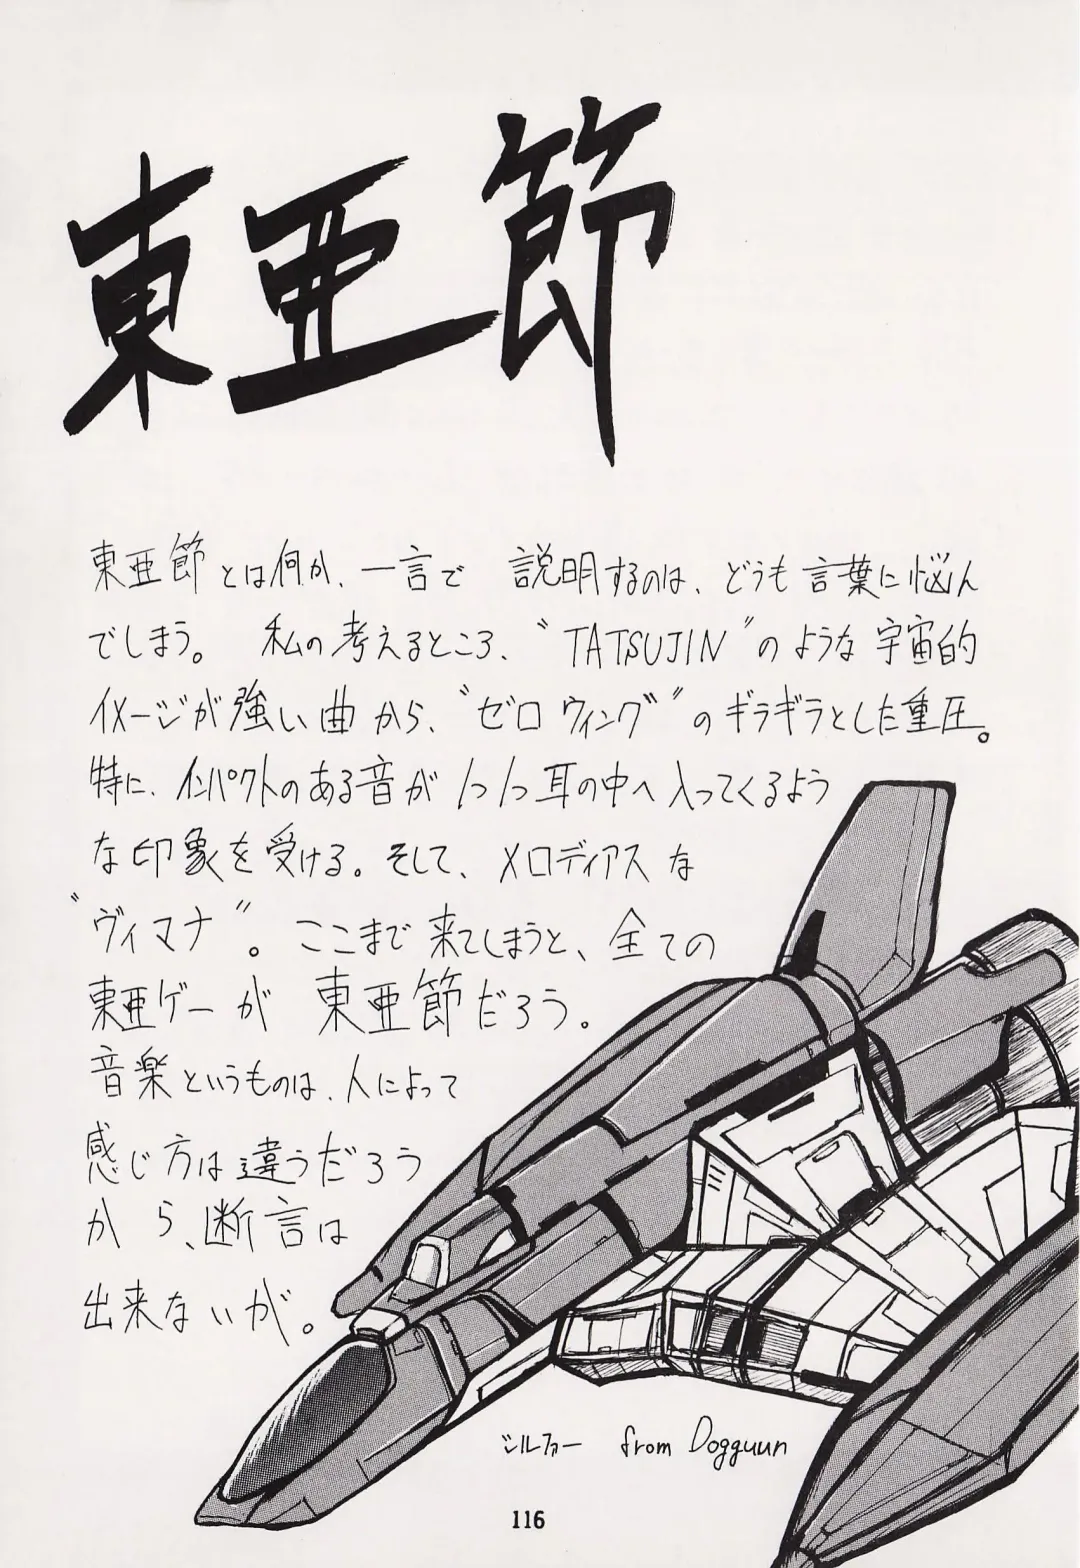 東亜節
東亜節とは何か、一言で 説明するのは、どうも言葉に悩ん
でしまう。 私の考えるところ、“TATSUJIN”のような宇宙的
イメージが強い曲から、“ゼロウィング”のギラギラとした重圧。
特に、インパクトのある音が1つ1つ耳の中へ入ってくるよう
な印象を受ける。そして、メロディアスな
“ヴィマナ”。ここまで来てしまうと、全ての
東亜ゲーが 東亜節だろう。
音楽というものは、人によって
感じ方は違うだろう
から、断言は
出来ないが。
シルファー from Dogguun
116